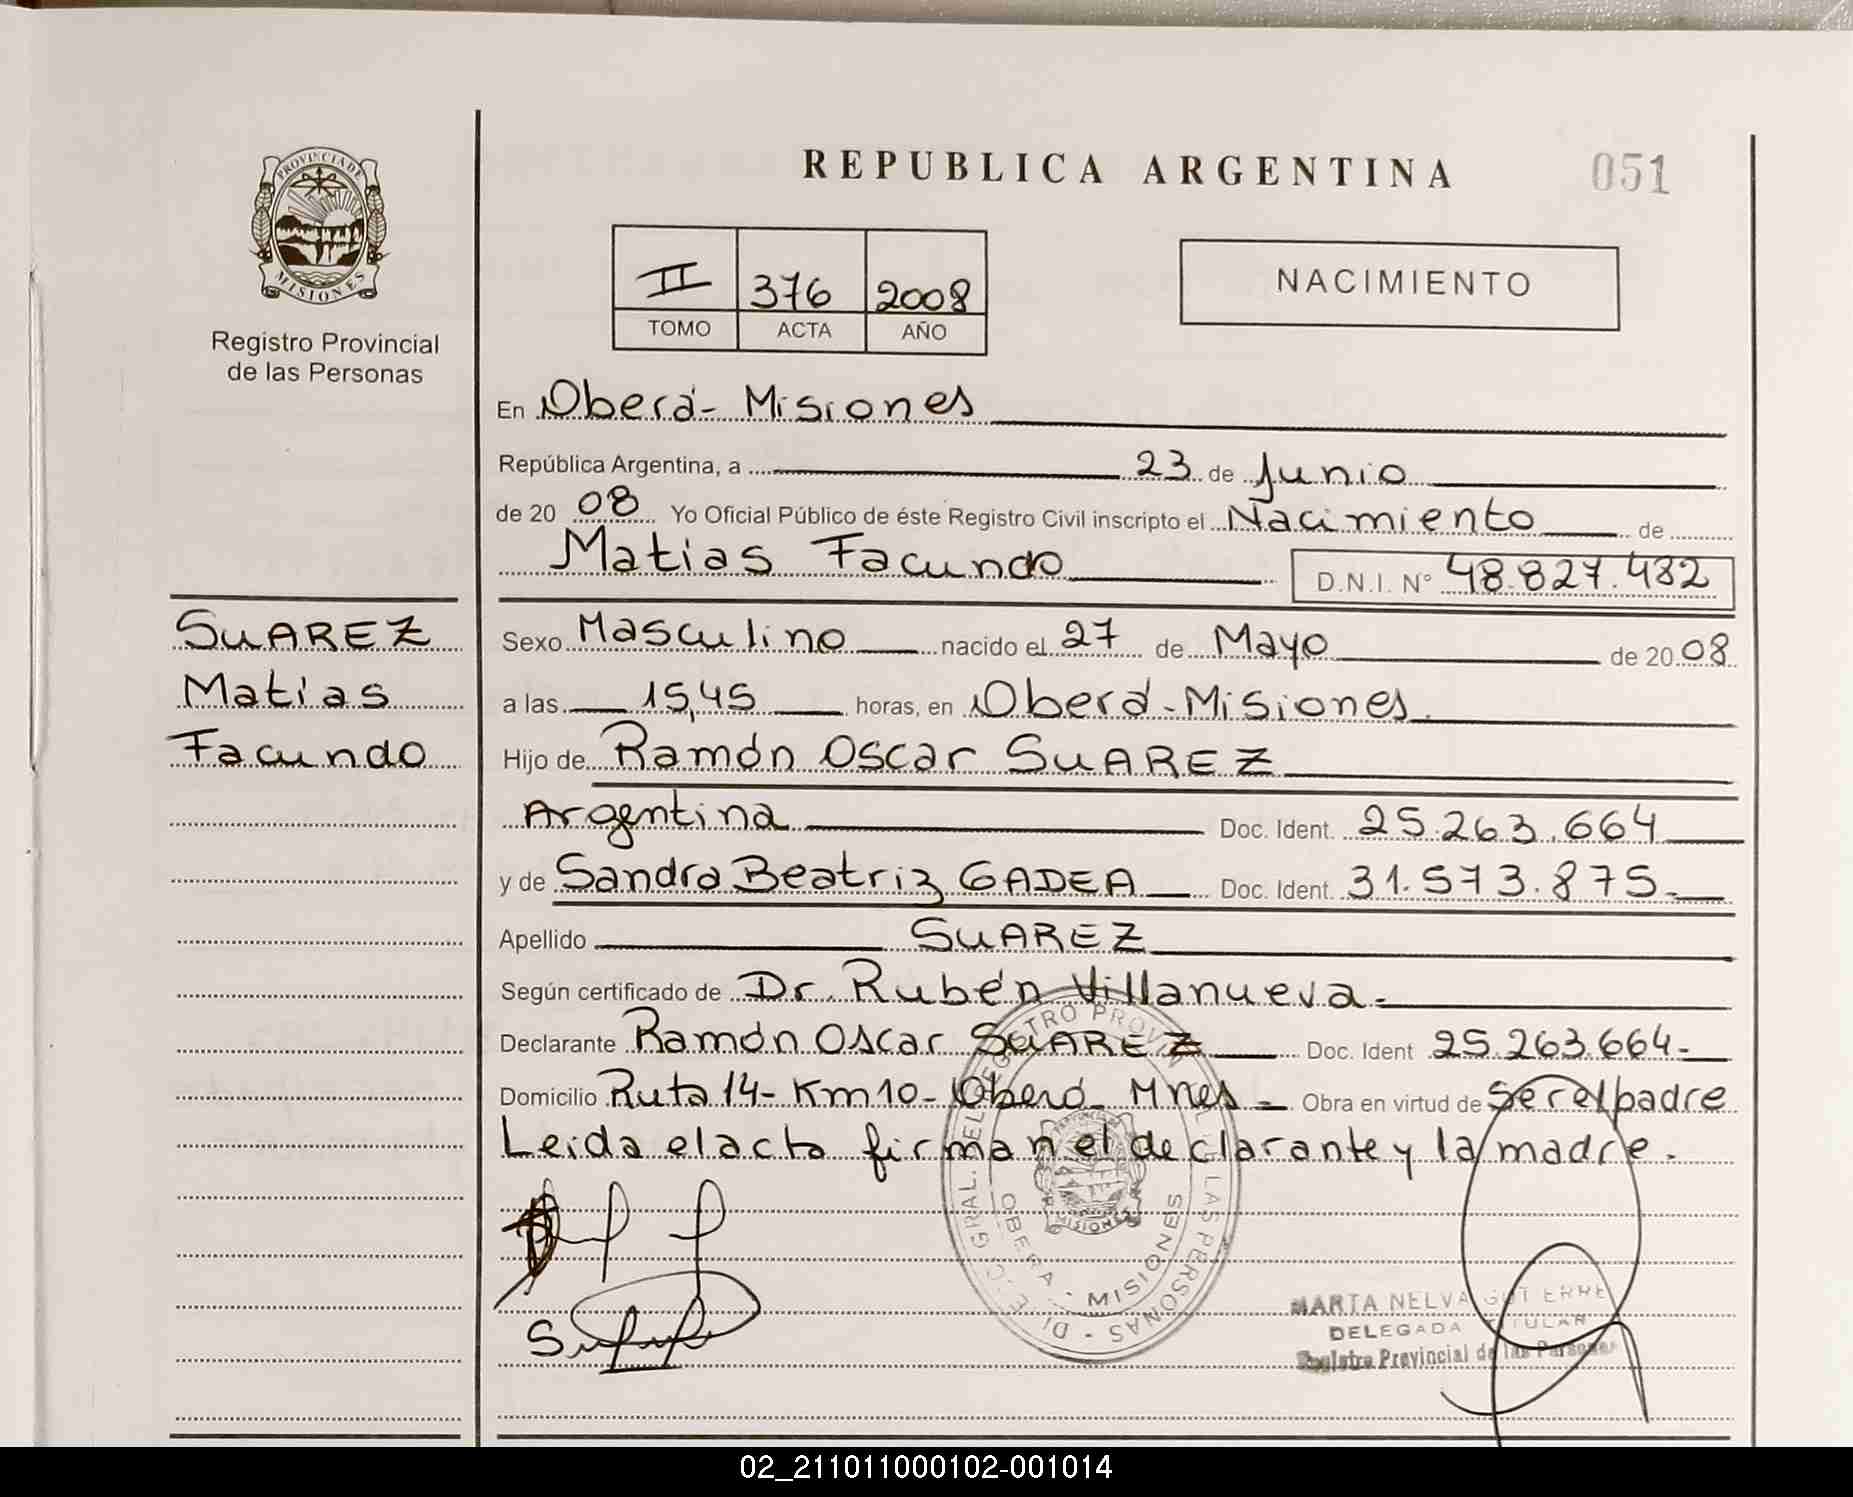 REPUBLICA ARGENTINA
051
PROVINCIA DE
MISIONES
Registro Provincial
de las Personas
II 376 2008
TOMO ACTA AÑO
NACIMIENTO
En Oberá - Misiones
República Argentina, a 23 de Junio
de 20 08 Yo Oficial Público de éste Registro Civil inscripto el Nacimiento de
Matias Facundo D.N.I. N° 48.827.482
SUAREZ
Matias
Facundo
Sexo Masculino nacido el 27 de Mayo de 20 08
a las 15,45 horas, en Oberá - Misiones.
Hijo de Ramón Oscar SUAREZ
Argentina Doc. Ident. 25.263.664
y de Sandra Beatriz GADEA Doc. Ident. 31.573.875.-
Apellido SUAREZ
Según certificado de Dr. Rubén Villanueva.-
Declarante Ramón Oscar SUAREZ Doc. Ident 25.263.664-
Domicilio Ruta 14 - Km 10 - Oberá Mnes - Obra en virtud de ser el padre
Leida el acta firman el declarante y la madre.
OBERA - MISIONES
MARTA NELVA
DELEGADA TITULAR
Registro Provincial de las Personas
02_211011000102-001014